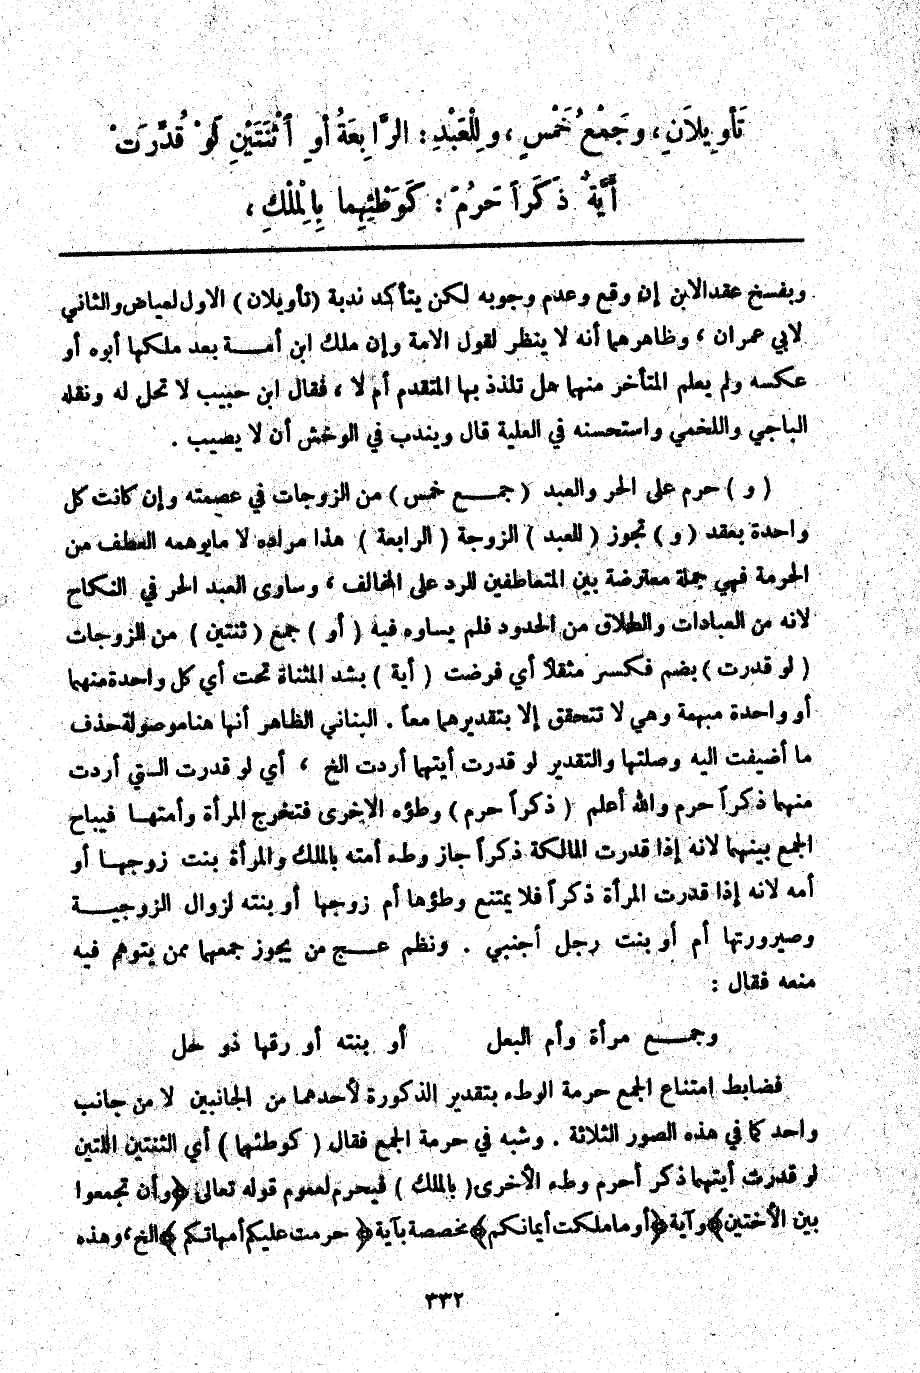 تَأْوِيلَانِ، وَجَمْعُ خَمْسٍ، وَلِلْعَبْدِ: الرَّابِعَةُ أَوِ ٱثْنَتَيْنِ لَوْ قُدِّرَتْ
أَيَّةٌ ذَكَراً حَرُمَ: كَوَطْئِهِما بِالْمِلْكِ،
وبفسخ عقد الابن إن وقع وعدم وجوبه لكن يتأكد ندبة (تأويلان) الاول لعياض والثاني
لابي عمران ، وظاهرهما أنه لا ينظر لقول الامة وإن ملك ابن أمــة بعد ملكها أبوه أو
عكسه ولم يعلم المتأخر منهما هل تلذذ بها المتقدم أم لا ، فقال ابن حبيب لا تحل له ونقله
الباجي واللخمي واستحسنه في العلية قال ويندب في الوخش أن لا يصيب .
( و ) حرم على الحر والعبد ( جمــع خمس ) من الزوجات في عصمته وإن كانت كل
واحدة بعقد ( و ) تجوز ( للعبد ) الزوجة ( الرابعة ) هذا مراده لا مايوهمه العطف من
الحرمة فهي جملة معترضة بين المتعاطفين للرد على المخالف ، وساوى العبد الحر في النكاح
لانه من العبادات والطلاق من الحدود فلم يساوه فيه ( أو ) جمع ( ثنتين ) من الزوجات
( لو قدرت ) بضم فكسر مثقلاً أي فرضت ( أية ) بشد المثناة تحت أي كل واحدة منهما
أو واحدة مبهمة وهي لا تتحقق إلا بتقديرهما معاً . البناني الظاهر أنها هنا موصولة حذف
ما أضيفت اليه وصلتها والتقدير لو قدرت أيتهما أردت الخ ، أي لو قدرت الـتي أردت
منهما ذكراً حرم والله أعلم ( ذكراً حرم ) وطؤه الاخرى فتخرج المرأة وأمتهــا فيباح
الجمع بينهما لانه إذا قدرت المالكة ذكراً جاز وطء أمته بالملك والمرأة بنت زوجهــا أو
أمه لانه إذا قدرت المرأة ذكراً فلا يمتنع وطؤها أم زوجها أو بنته لزوال الزوجيــة
وصيرورتها أم أو بنت رجل أجنبي . ونظم عــج من يجوز جمعهما ممن يتوهم فيه
منعه فقال :
وجمــع مرأة وأم البعل أو بنته أو رقها ذو حل
فضابط امتناع الجمع حرمة الوطء بتقدير الذكورة لأحدهما من الجانبين لا من جانب
واحد كما في هذه الصور الثلاثة . وشبه في حرمة الجمع فقال ( كوطئهما ) أي الثنتين اللتين
لو قدرت أيتهما ذكر أحرم وطء الأخرى ( بالملك ) فيحرم لعموم قوله تعالى ﴿وأن تجمعوا
بين الأختين﴾ وآية ﴿أو ما ملكت أيمانكم﴾ مخصصة بآية ﴿ حرمت عليكم أمهاتكم ﴾ الخ ، وهذه
٣٣٢